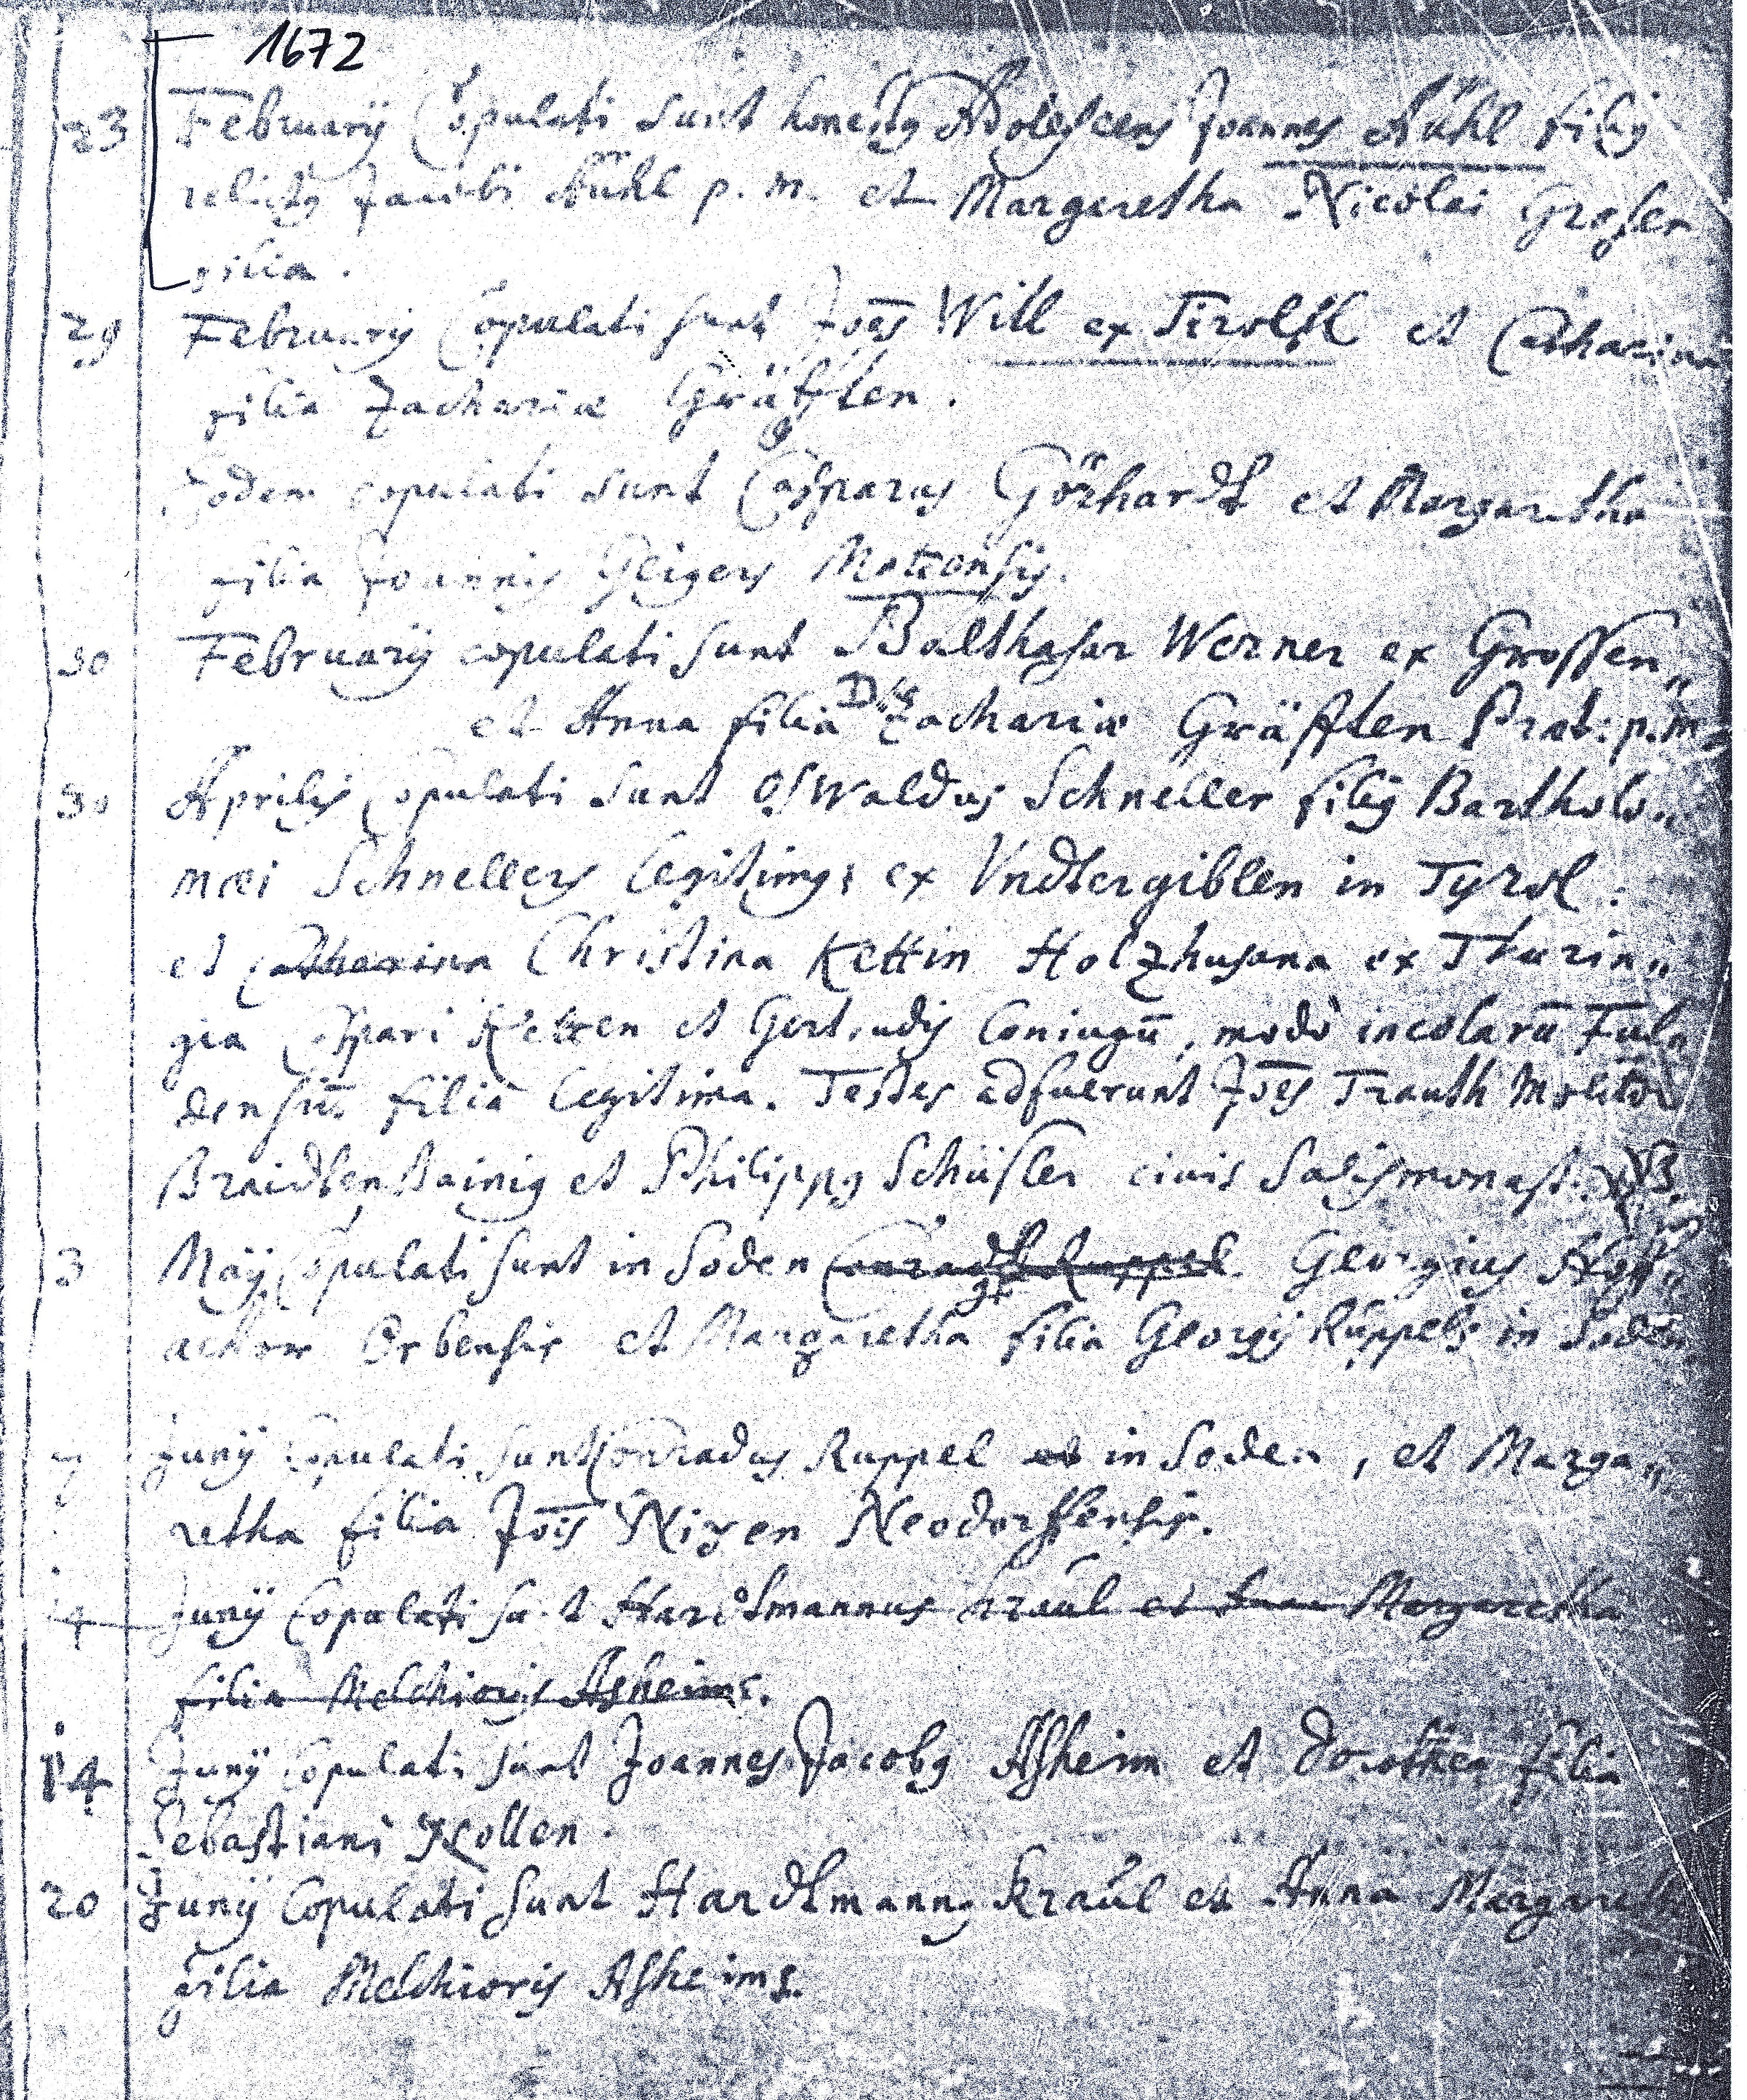 1672
23 Februarij Copulati sunt honestus Adolescens Joannes Kühl filius
relictus Jacobi Kühl p. m. et Margaretha Nicolai Grosen
filia.
29 Februarij Copulati sunt Joēs Will ex Tirolsk et Catharina
filia Zachariæ Gräfften.
Eodem copulati sunt Casparus Görhardt et Margaretha
filia Joannis Geigers
30 Februarij copulati sunt Balthasar Werner ex Grossen„
et Anna filia Dni Zachariæ Gräfften Præt: p.m.
30 Aprilis Copulati sunt Oswaldus Schneller filius Bartholo„
mæi Schnellers legitimus ex Vndtergiblen in Tyrol:
et Catharina Christina Kettin Holzhusana ex Thurin„
gia Caspari Ketten et Gertrudis Coniugū, modò incolarū Ful„
densiū filia legitima. Testes adfuerunt Joēs Trauth Molitor
Braidtenbainig et Philippus Schüsler civis Salismonast:
3 Maij Copulati sunt in Soden Conradt Ruppel Georgius
Orbensis et Margaretha filia Georgij Rüppels in Soden
7 Junij Copulati sunt Conradus Ruppel et in Soden, et Marga„
retha filia Jois Nizen Neodorffensis.
14 Junij Copulati sunt Hardtmannus Kraul et Anna Margaretha
filia Melchioris Asheims.
14 Junij Copulati sunt Joannes Jacobus Asheim et Dorothea filia
Sebastiani Kollen.
20 Junij Copulati sunt Hardtmannus Kraúl et Anna Margaretha
filia Melchioris Asheims.